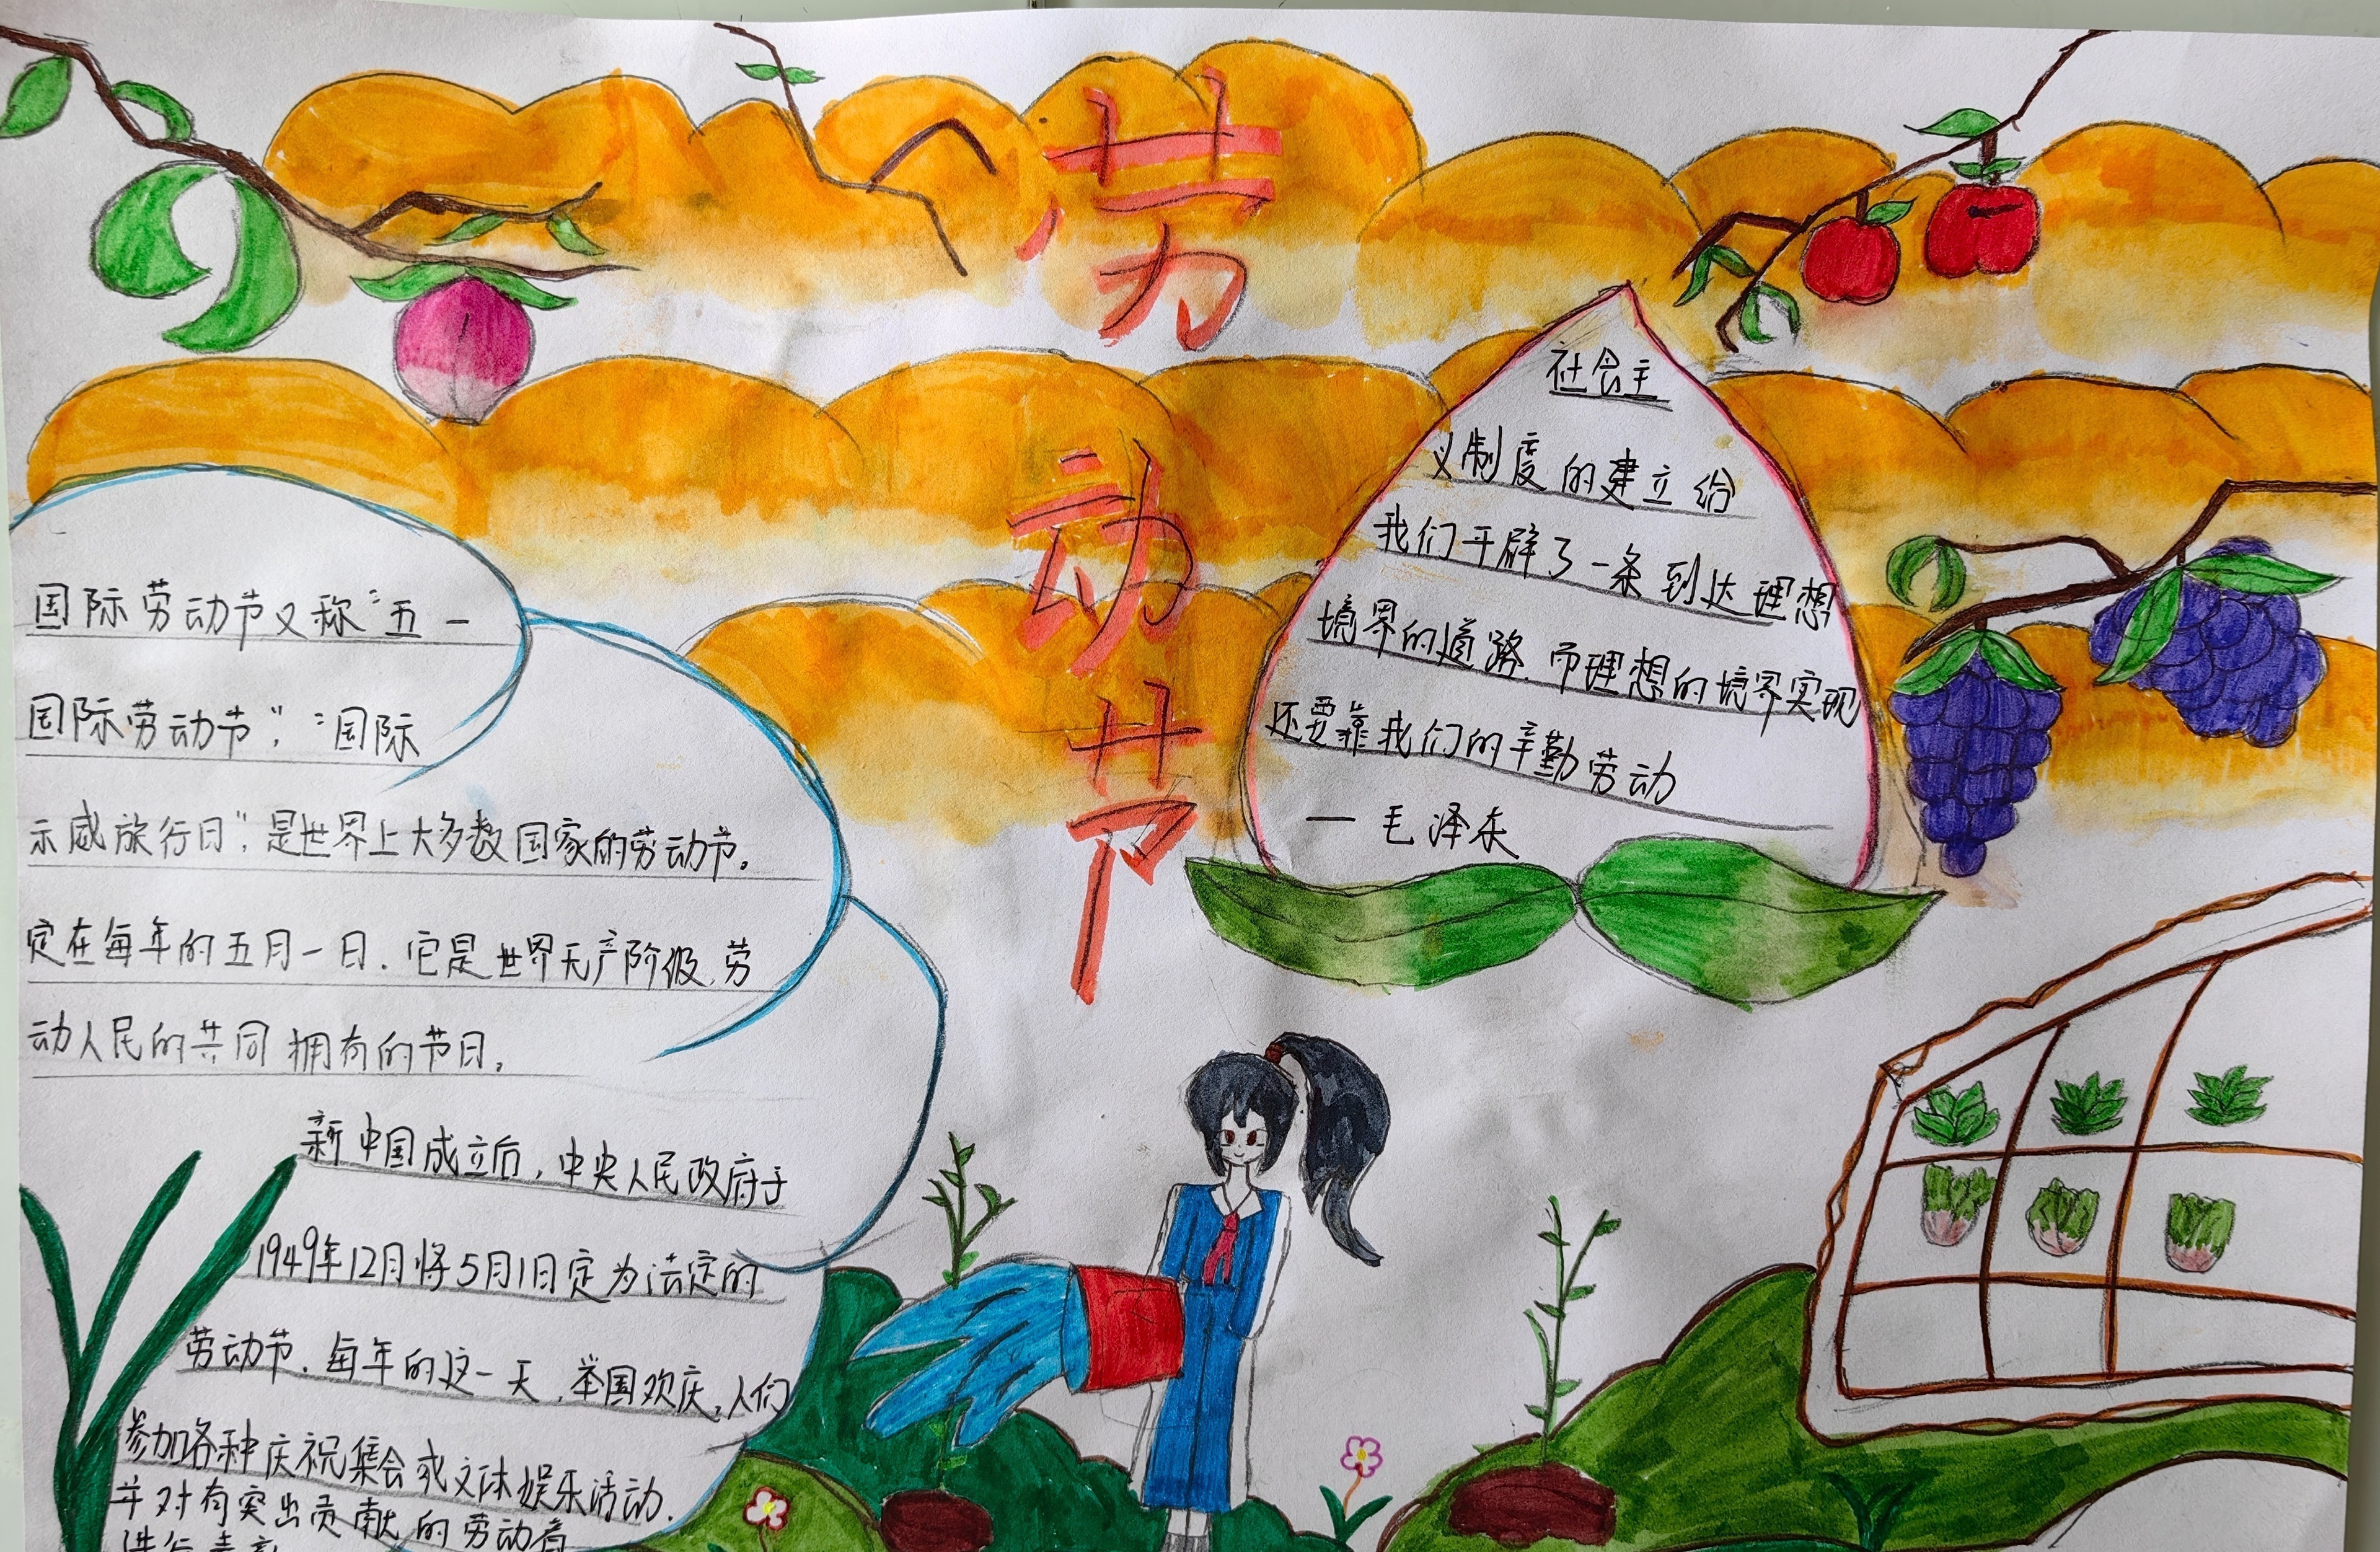 劳动节
国际劳动节又称“五一
国际劳动节”，“国际
示威旅行日”，是世界上大多数国家的劳动节。
定在每年的五月一日．它是世界无产阶级、劳
动人民的共同拥有的节日。
新中国成立后，中央人民政府于
1949年12月将5月1日定为法定的
劳动节．每年的这一天，举国欢庆，人们
参加各种庆祝集会或文体娱乐活动．
并对有突出贡献的劳动者
进行表彰
社会主
义制度的建立给
我们开辟了一条到达理想
境界的道路，而理想的境界实现
还要靠我们的辛勤劳动
— 毛泽东